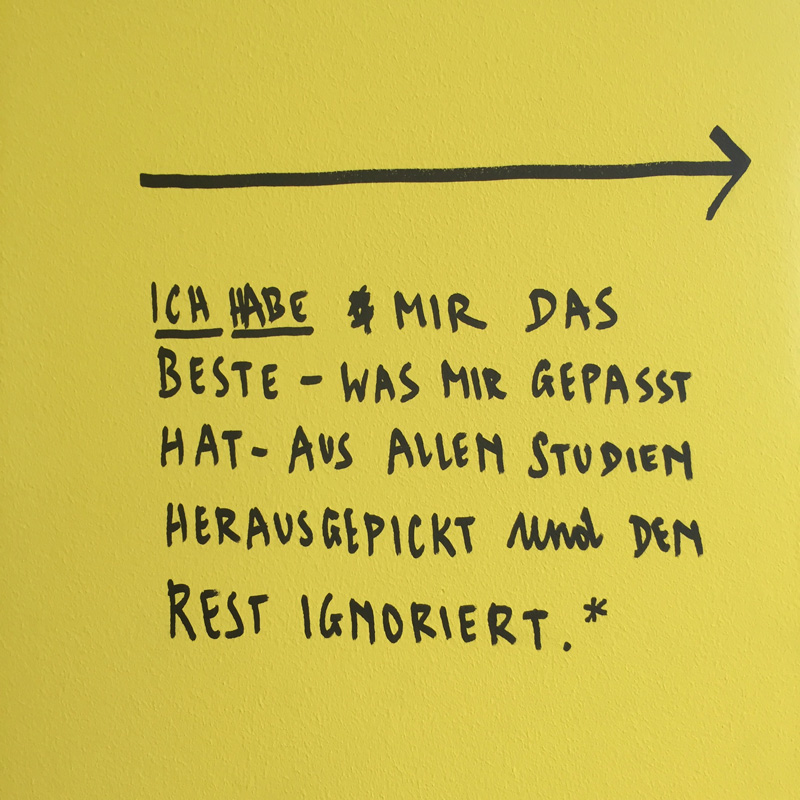 ICH HABE MIR DAS
BESTE - WAS MIR GEPASST
HAT - AUS ALLEN STUDIEN
HERAUSGEPICKT und DEN
REST IGNORIERT.*